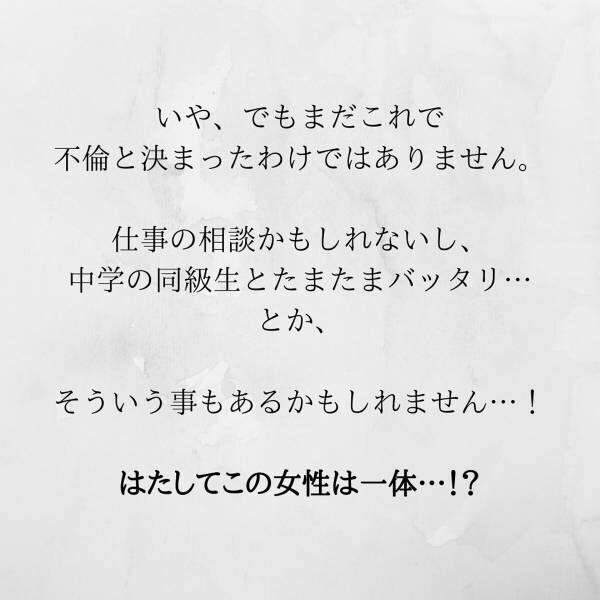 いや、でもまだこれで
不倫と決まったわけではありません。
仕事の相談かもしれないし、
中学の同級生とたまたまバッタリ…
とか、
そういう事もあるかもしれません…！
はたしてこの女性は一体…!？